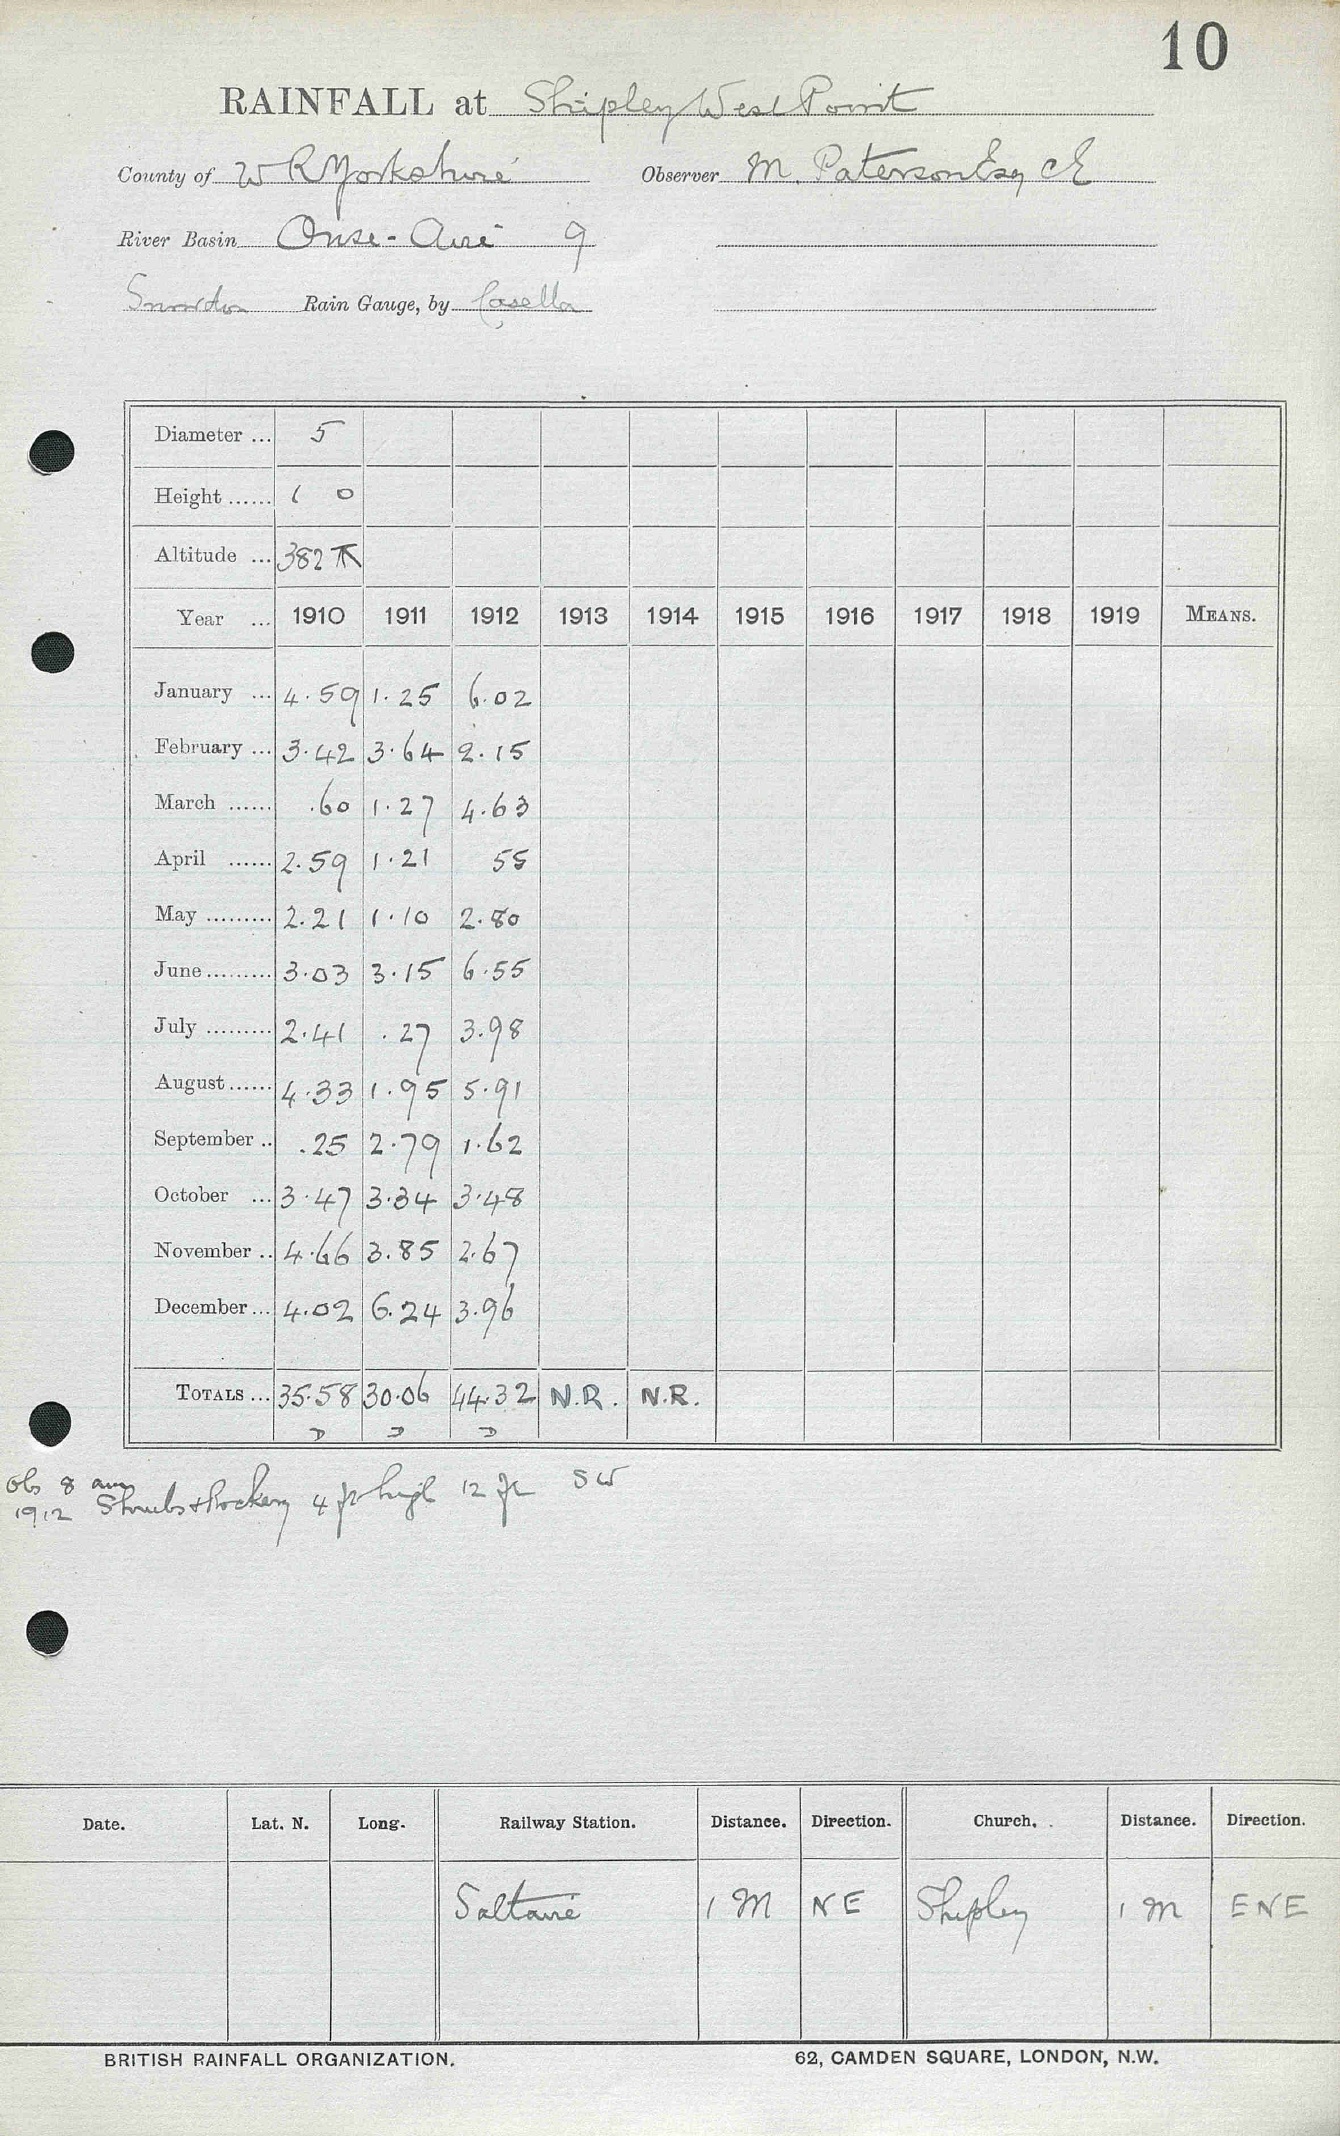 10
RAINFALL at Shipley West Point
County of W R Yorkshire Observer M. Paterson Esq CE
River Basin Ouse-Aire 9
Snowdon Rain Gauge, by Casella
Diameter ... 5
Height ...... 1 0
Altitude ... 382
Year ... 1910 1911 1912 1913 1914 1915 1916 1917 1918 1919 MEANS.
January ... 4.59 1.25 6.02
February ... 3.42 3.64 2.15
March ...... .60 1.27 4.63
April ...... 2.59 1.21 55
May ......... 2.21 1.10 2.80
June ......... 3.03 3.15 6.55
July ......... 2.41 .27 3.98
August ...... 4.33 1.95 5.91
September .. .25 2.79 1.62
October ... 3.47 3.34 3.48
November .. 4.66 3.85 2.67
December ... 4.02 6.24 3.96
TOTALS ... 35.58 30.06 44.32 N.R. N.R.
Obs 8 am
1912 Shrubs & Rockery 4 ft high 12 ft SW
Date. Lat. N. Long. Railway Station. Distance. Direction. Church. Distance. Direction.
Saltaire 1 M NE Shipley 1 M ENE
BRITISH RAINFALL ORGANIZATION. 62, CAMDEN SQUARE, LONDON, N.W.